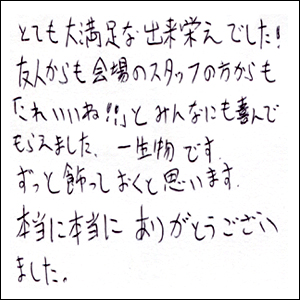 とても大満足な出来栄えでした!
友人からも会場のスタッフの方からも
「これいいね!!」とみんなにも喜んで
もらえました、一生物です.
ずっと飾っておくと思います.
本当に本当にありがとうござい
ました。